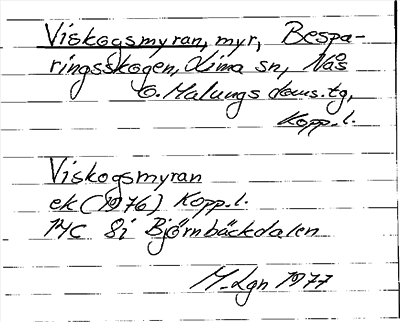 Viskogsmyran, myr, Bespa-
ringsskogen, Lima sn, Nås
o. Malungs doms.tg,
Kopp. l.
Viskogsmyran
ek (1976) Kopp. l.
14C 8i Björnbäckdalen
M-Lgn 1977